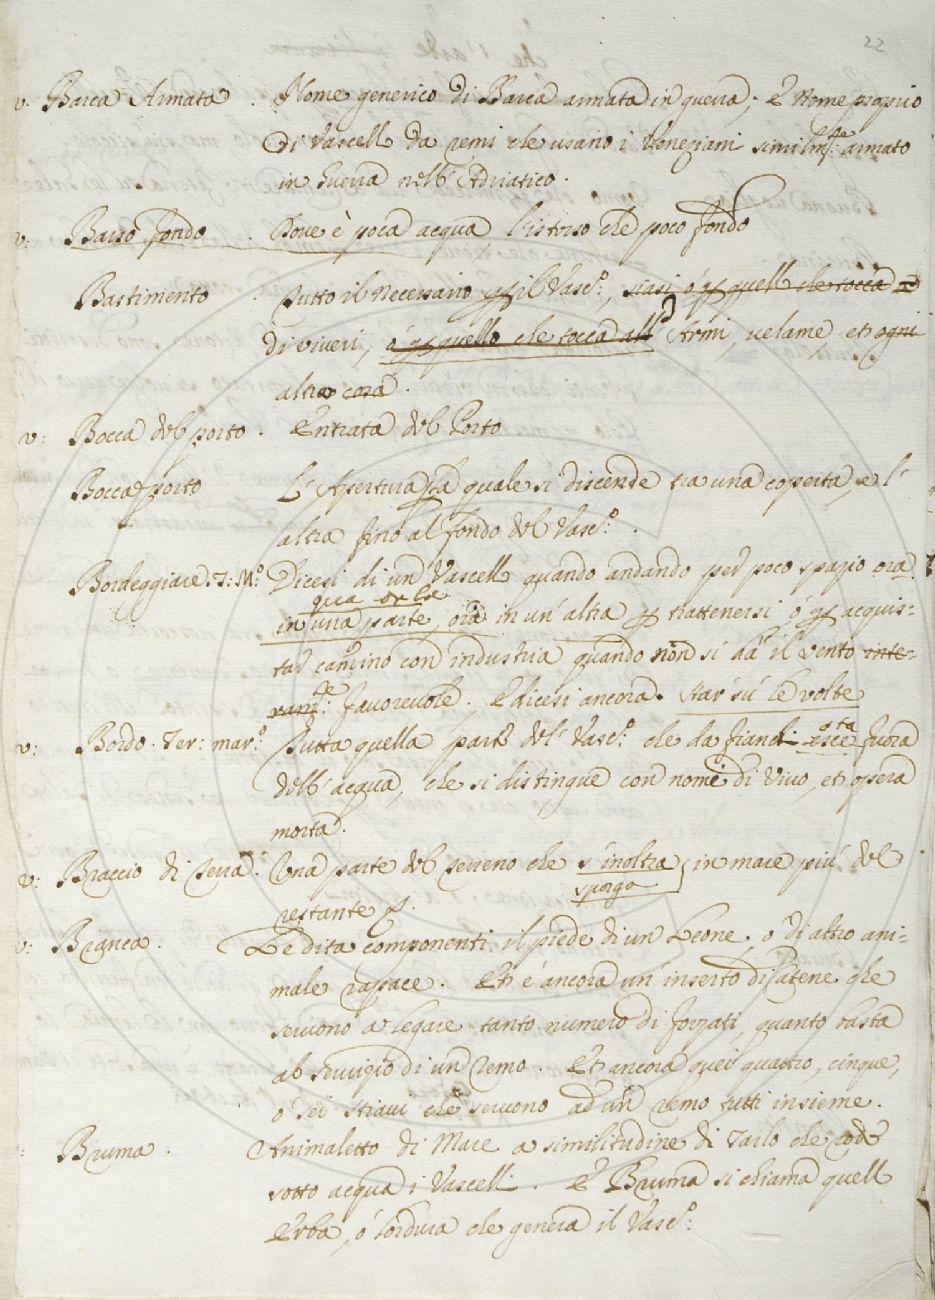 22
v. Barca Armata. Nome generico di Barca armata in guerra; È Nome proprio
di Vascell da remi che usano i Veneziani similmte armato
in Guerra nell' Adriatico.
v: Basso fondo. Dove è poca acqua l'istesso che poco fondo
Bastimento. Tutto il necessario p il Vasco:, siasi ó p quell che tocca
di viveri, ó p quello che tocca all' Armi, velame, et ogni
altra cosa.
v: Bocca del porto. Entrata del Porto
Boccaporto L'Apertura p la quale si discende tra una coperta, e l'
altra fino al fondo del Vasco:.
Bordeggiare. T: Mo: Dicesi di un Vascell quando andando per poco spazio ora
qua or la
in una parte, ora in un' altra p trattenersi ó p acquis-
tar camino con industria quando non si dà il vento inte-
ramte: favorevole. E dicesi ancora. star sú le volte
v: Bordo. Ter: maro: Tutta quella parte del Vasco: che da fianchi
sta
esce fuora
dell' acqua, che si distingue con nome di Vivo, et opera
morta.
v: Braccio di Terra. Una parte del terreno che s'inoltra in mare più del
sporga
restante
v: Branca. Le dita componenti il piede di un Leone, o di altro ani-
male rapace. Et è ancora un' inserto di Catene che
servono a legare tanto numero di forzati, quanto basta
al servizio di un remo. Et ancora quei quattro, cinque,
o sei stiavi che servono ad un remo tutti insieme.
Bruma. Animaletto di Mare a similitudine di Tarlo che rode
sotto acqua i Vascell. E Bruma si chiama quell
Erba, ó lordura che genera il Vasco: